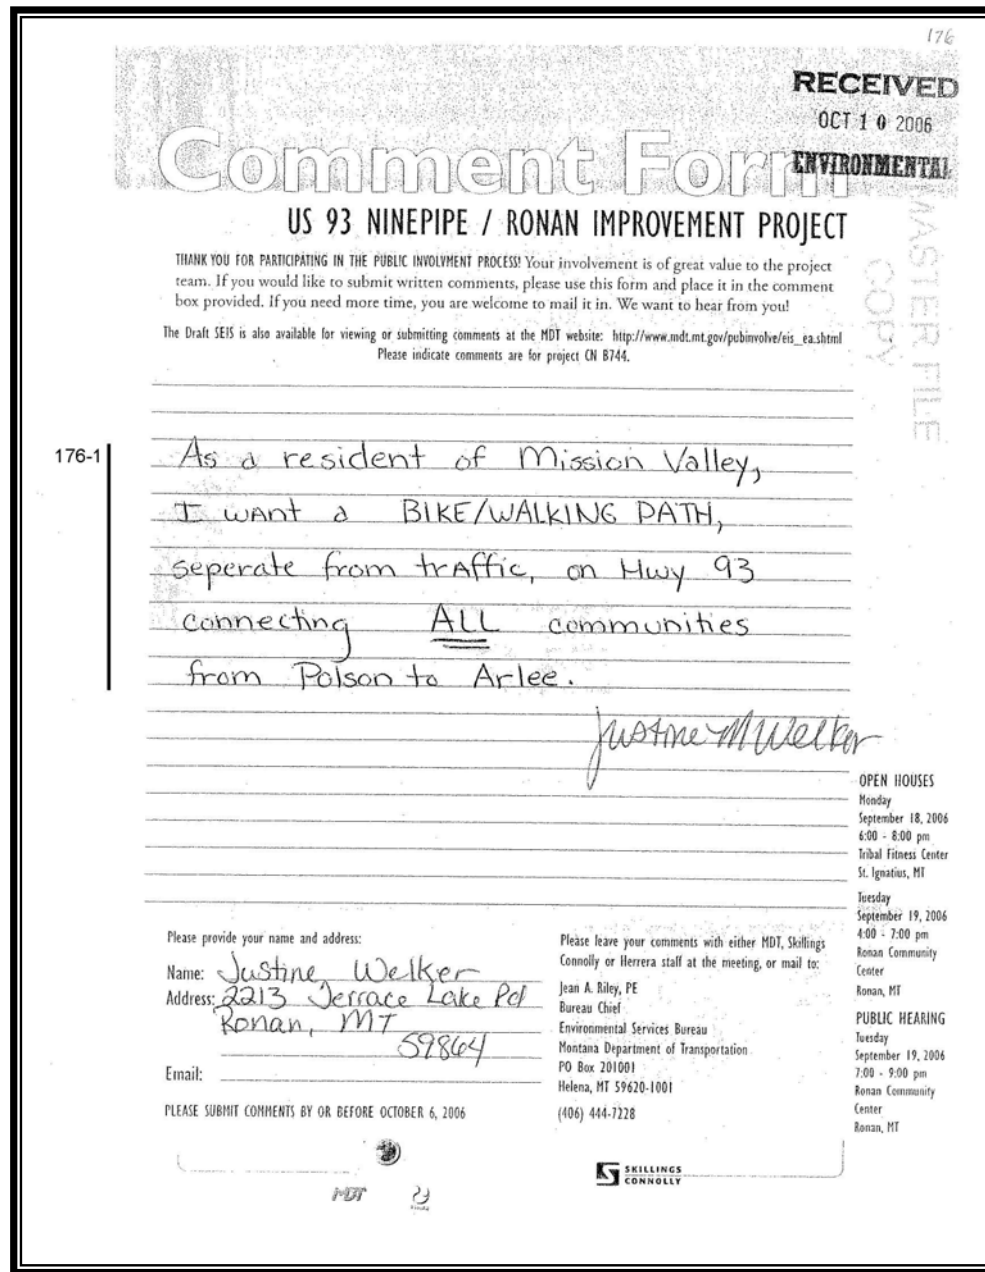 176
RECEIVED
OCT 10 2006
ENVIRONMENTAL
Comment Form
MASTER FILE
COPY
US 93 NINEPIPE / RONAN IMPROVEMENT PROJECT
THANK YOU FOR PARTICIPATING IN THE PUBLIC INVOLVMENT PROCESS! Your involvement is of great value to the project
team. If you would like to submit written comments, please use this form and place it in the comment
box provided. If you need more time, you are welcome to mail it in. We want to hear from you!
The Draft SEIS is also available for viewing or submitting comments at the MDT website: http://www.mdt.mt.gov/pubinvolve/eis_ea.shtml
Please indicate comments are for project CN B744.
176-1
As a resident of Mission Valley,
I want a BIKE/WALKING PATH,
seperate from traffic, on Hwy 93
connecting ALL communities
from Polson to Arlee.
Justine M Welker
OPEN HOUSES
Monday
September 18, 2006
6:00 - 8:00 pm
Tribal Fitness Center
St. Ignatius, MT
Tuesday
September 19, 2006
4:00 - 7:00 pm
Ronan Community
Center
Ronan, MT
PUBLIC HEARING
Tuesday
September 19, 2006
7:00 - 9:00 pm
Ronan Community
Center
Ronan, MT
Please provide your name and address:
Name: Justine Welker
Address: 2213 Terrace Lake Rd
Ronan, MT
59864
Email:
PLEASE SUBMIT COMMENTS BY OR BEFORE OCTOBER 6, 2006
Please leave your comments with either MDT, Skillings
Connolly or Herrera staff at the meeting, or mail to:
Jean A. Riley, PE
Bureau Chief
Environmental Services Bureau
Montana Department of Transportation
PO Box 201001
Helena, MT 59620-1001
(406) 444-7228
MDT
SKILLINGS
CONNOLLY